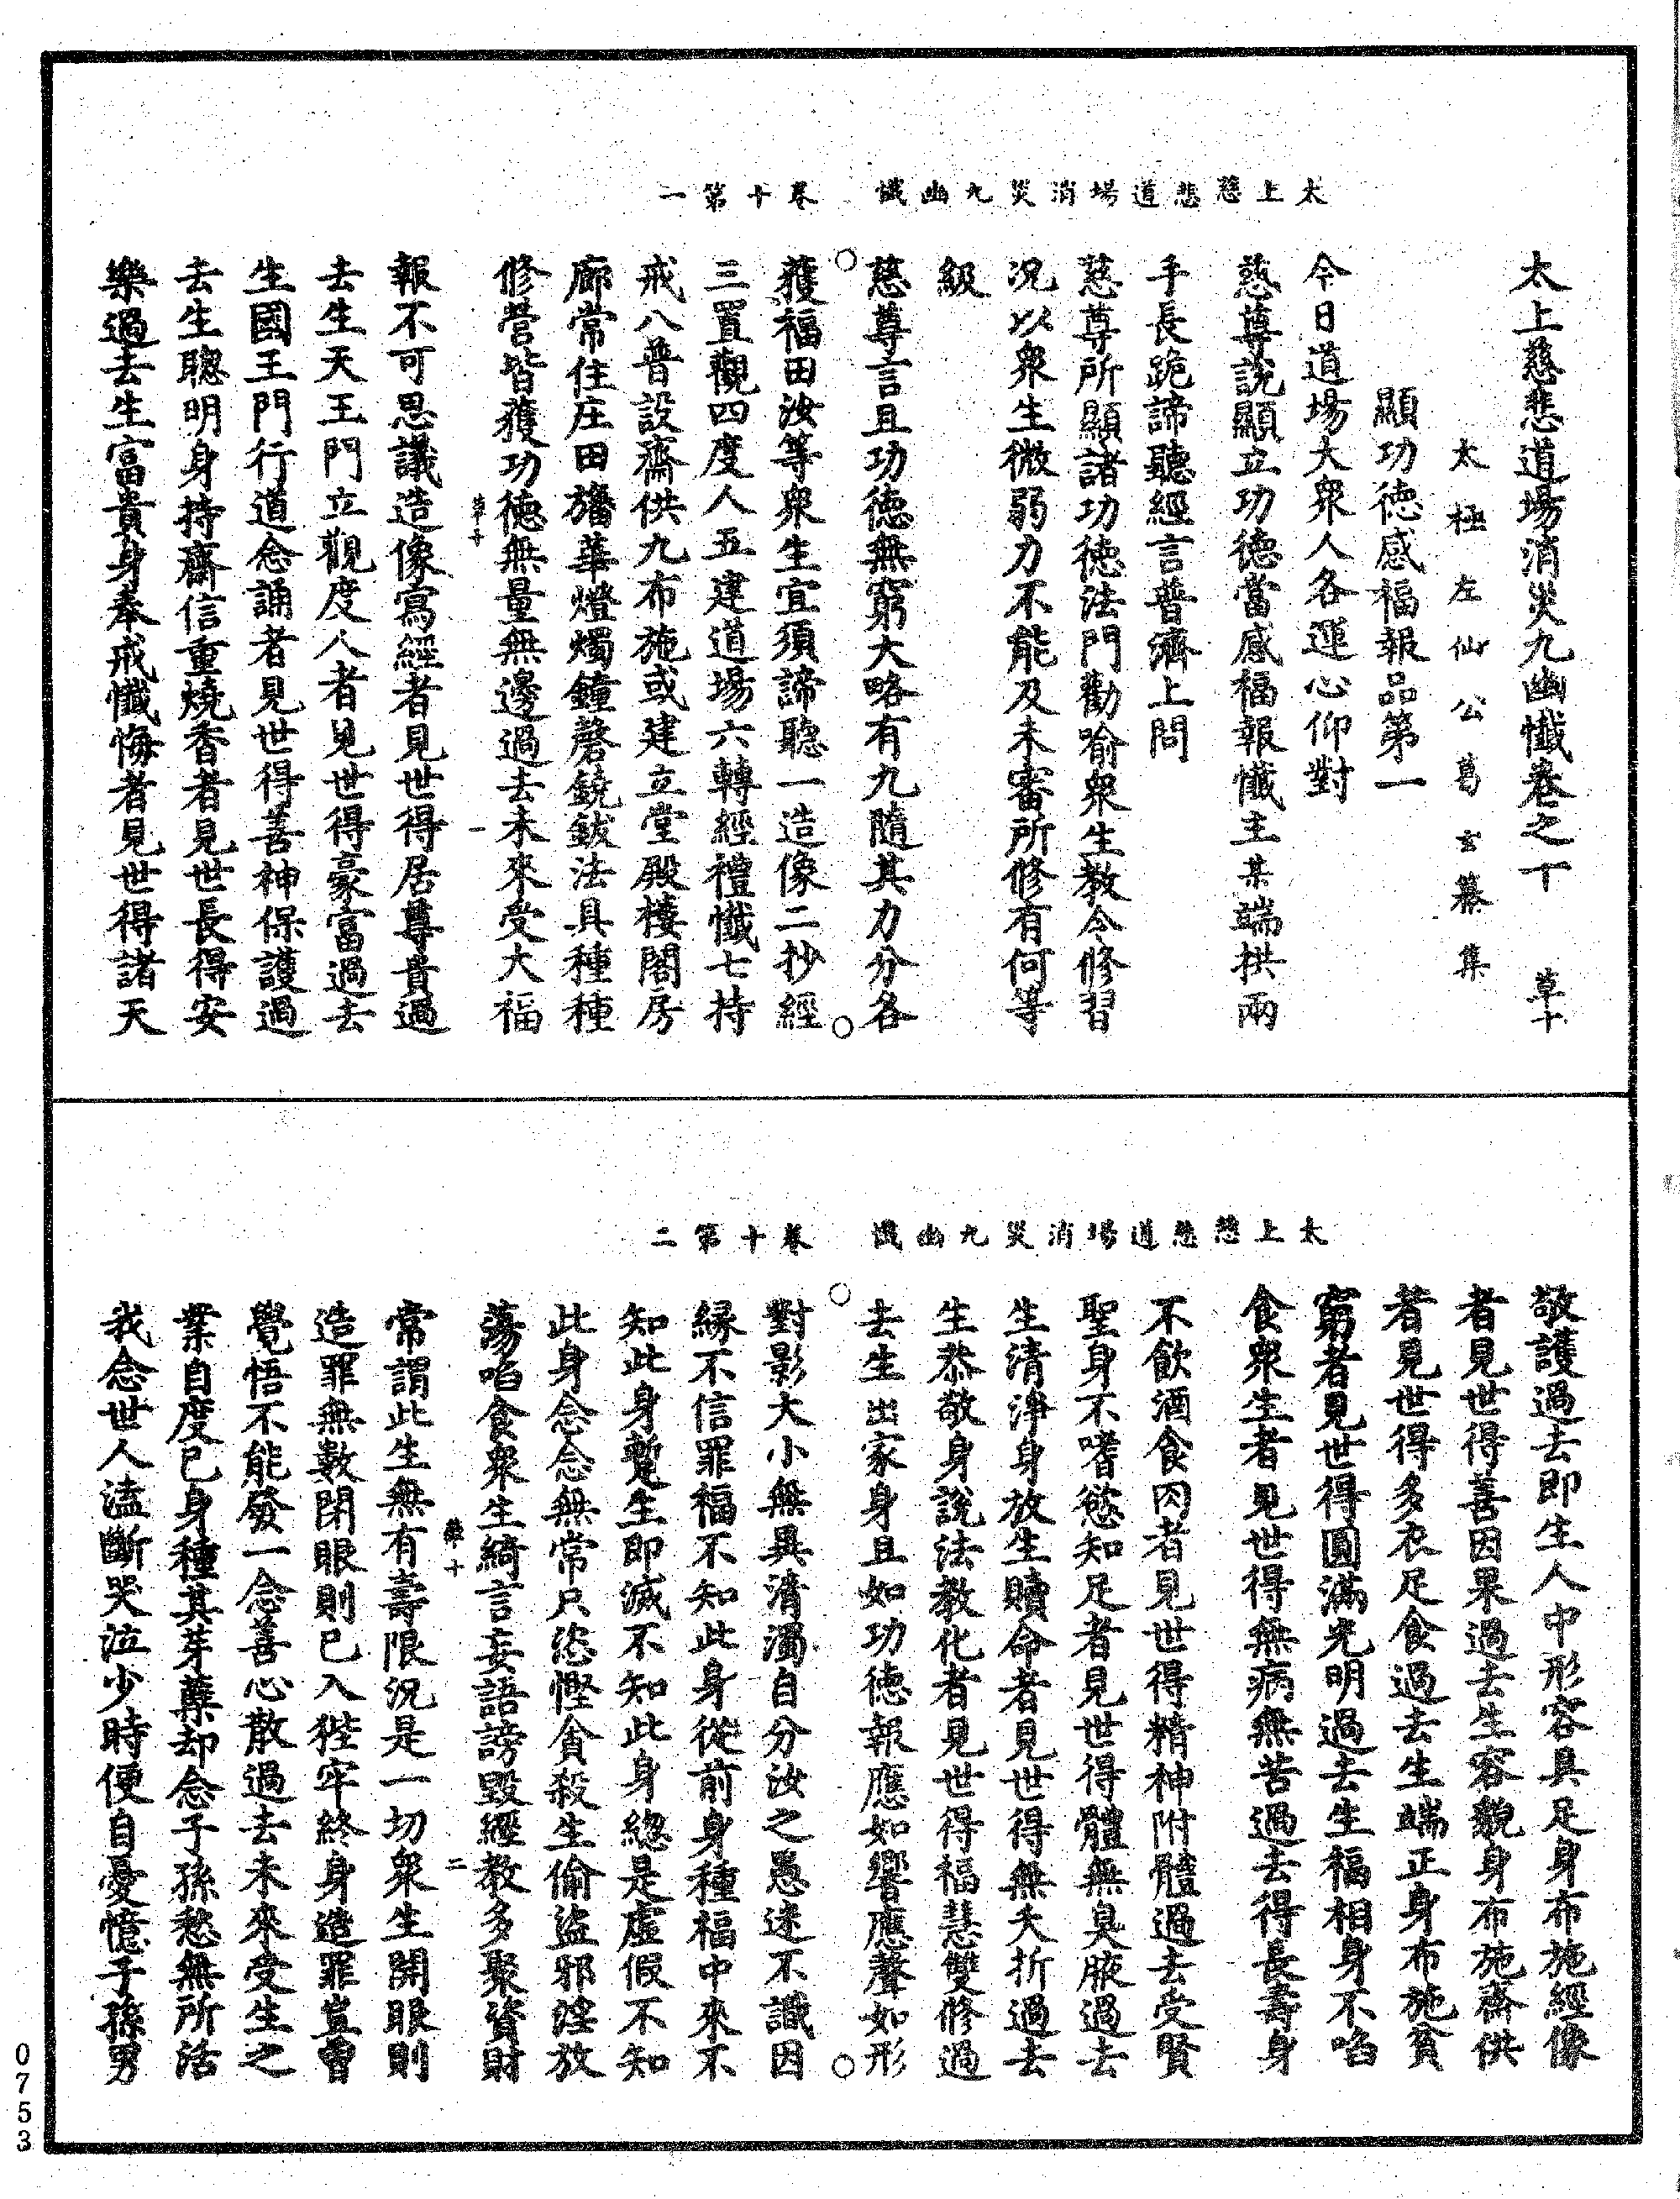 太上慈悲道場消災九幽懺　卷十第一
太上慈悲道場消災九幽懺卷之十　草十
太極左仙公葛玄纂集
顯功德感福報品第一
今日道場大衆人各運心仰對
慈尊說顯立功德當感福報懺主某端拱兩
手長跪諦聽經言普濟上問
慈尊所顯諸功德法門勸喻衆生教令修習
況以衆生微弱力不能及未審所修有何等
級
慈尊言且功德無窮大略有九隨其力分各
獲福田汝等衆生宜須諦聽一造像二抄經
三置觀四度人五建道場六轉經禮懺七持
戒八普設齋供九布施或建立堂殿樓閣房
廊常住庄田旛華燈燭鐘磬鐃鈸法具種種
修營皆獲功德無量無邊過去未來受大福
草十　一
報不可思議造像寫經者見世得居尊貴過
去生天王門立觀度人者見世得豪富過去
生國王門行道念誦者見世得善神保護過
去生聰明身持齋信重燒香者見世長得安
樂過去生富貴身奉戒懺悔者見世得諸天
太上慈悲道場消災九幽懺　卷十第二
敬護過去即生人中形容具足身布施經像
者見世得善因果過去生容貌身布施齋供
者見世得多衣足食過去生端正身布施貧
窮者見世得圓滿光明過去生福相身不啗
食衆生者見世得無病無苦過去得長壽身
不飲酒食肉者見世得精神附體過去受賢
聖身不嗜慾知足者見世得體無臭腋過去
生清淨身放生贖命者見世得無夭折過去
生恭敬身說法教化者見世得福慧雙修過
去生出家身且如功德報應如響應聲如形
對影大小無異清濁自分汝之愚迷不識因
緣不信罪福不知此身從前身種福中來不
知此身蹔生即滅不知此身緫是虛假不知
此身念念無常只恣慳貪殺生偷盜邪淫放
蕩啗食衆生綺言妄語謗毀經教多聚資財
草十　二
常謂此生無有壽限況是一切衆生開眼則
造罪無數閉眼則已入狴牢終身造罪豈曾
覺悟不能發一念善心散過去未來受生之
業自度已身種其芽蘖却念子孫愁無所活
我念世人溘斷哭泣少時便自憂憶子孫男
0753